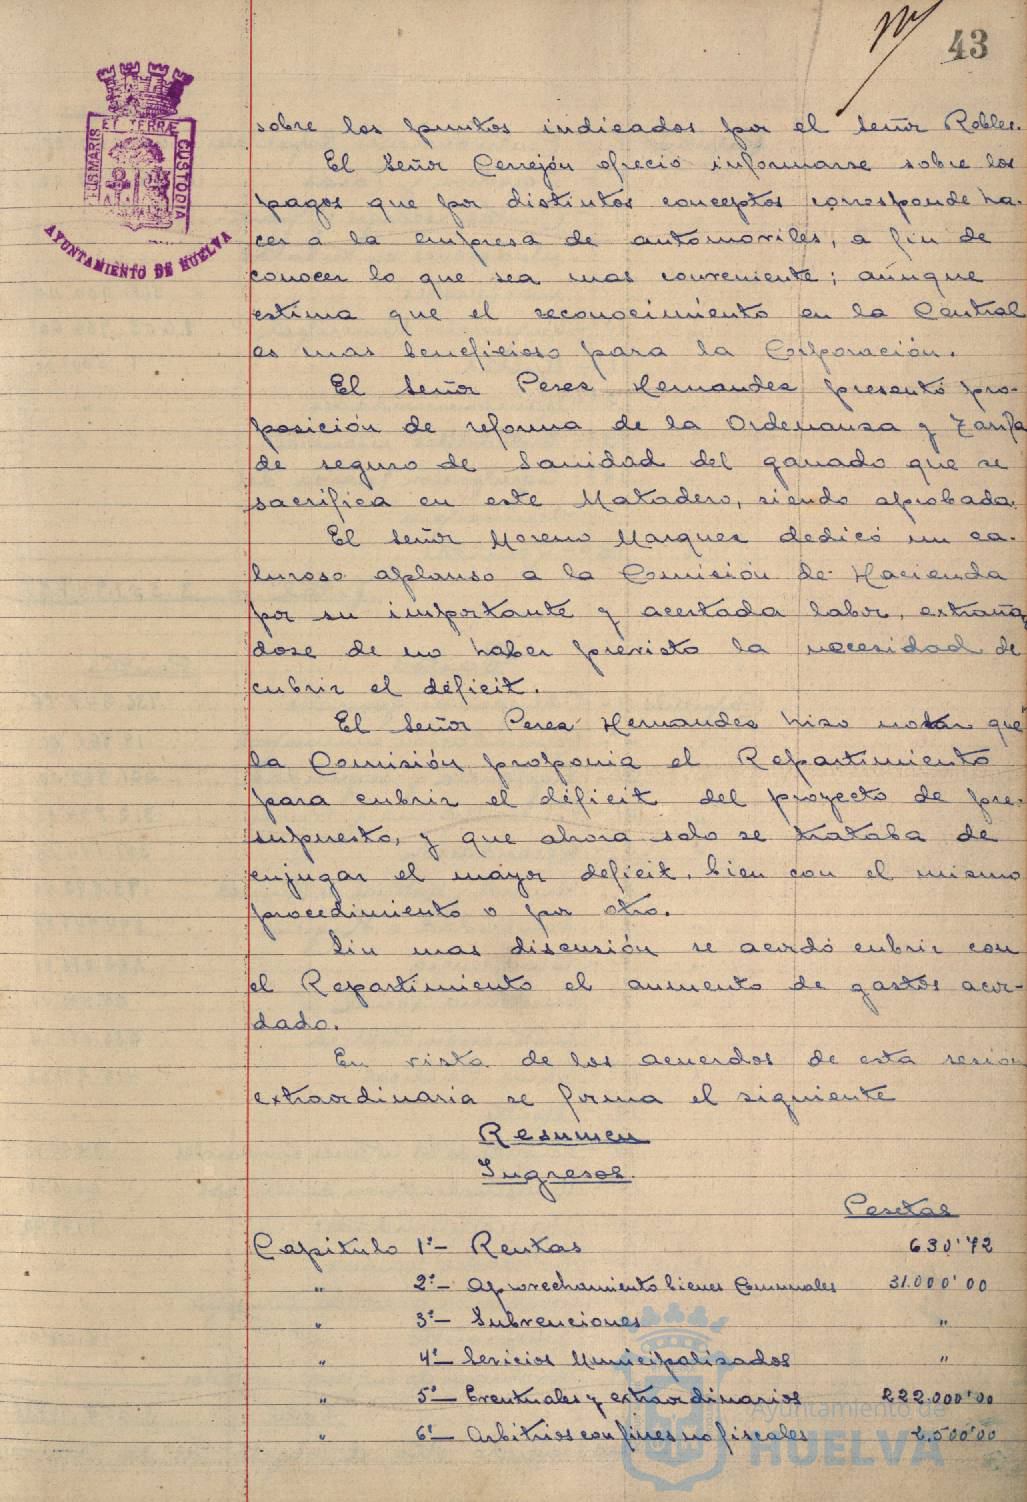 43
PORTUS MARIS ET TERRÆ CUSTODIA
AYUNTAMIENTO DE HUELVA
sobre los puntos indicados por el Señor Robles.
El Señor Cerrejón ofreció informarse sobre los
pagos que por distintos conceptos corresponde ha-
cer a la empresa de automoviles, a fin de
conocer lo que sea mas conveniente; aunque
estima que el reconocimiento en la Central
es mas beneficioso para la Corporación.
El Señor Perez Hernandez presentó pro-
posición de reforma de la Ordenanza y Tarifa
de seguro de Sanidad del ganado que se
sacrifica en este Matadero, siendo aprobada.
El Señor Moreno Marquez dedicó un ca-
luroso aplauso a la Comisión de Hacienda
por su importante y acertada labor, extrañan
dose de no haber previsto la necesidad de
cubrir el déficit.
El Señor Perez Hernandez hizo notar que
la Comisión proponia el Repartimiento
para cubrir el déficit del proyecto de pre-
supuesto, y que ahora solo se trataba de
enjugar el mayor deficit, bien con el mismo
procedimiento o por otro.
Sin mas discusión se acordó cubrir con
el Repartimiento el aumento de gastos acor-
dado.
En vista de los acuerdos de esta sesion
extraordinaria se forma el siguiente
Resumen
Ingresos.
Pesetas
Capitulo 1º- Rentas 630'72
" 2º- Aprovechamiento bienes Comunales 31.000'00
" 3º- Subvenciones "
" 4º- Servicios Municipalizados "
" 5º- Eventuales y extraordinarios 222.000'00
" 6º- Arbitrios con fines no fiscales 2.500'00
Ayuntamiento de
HUELVA